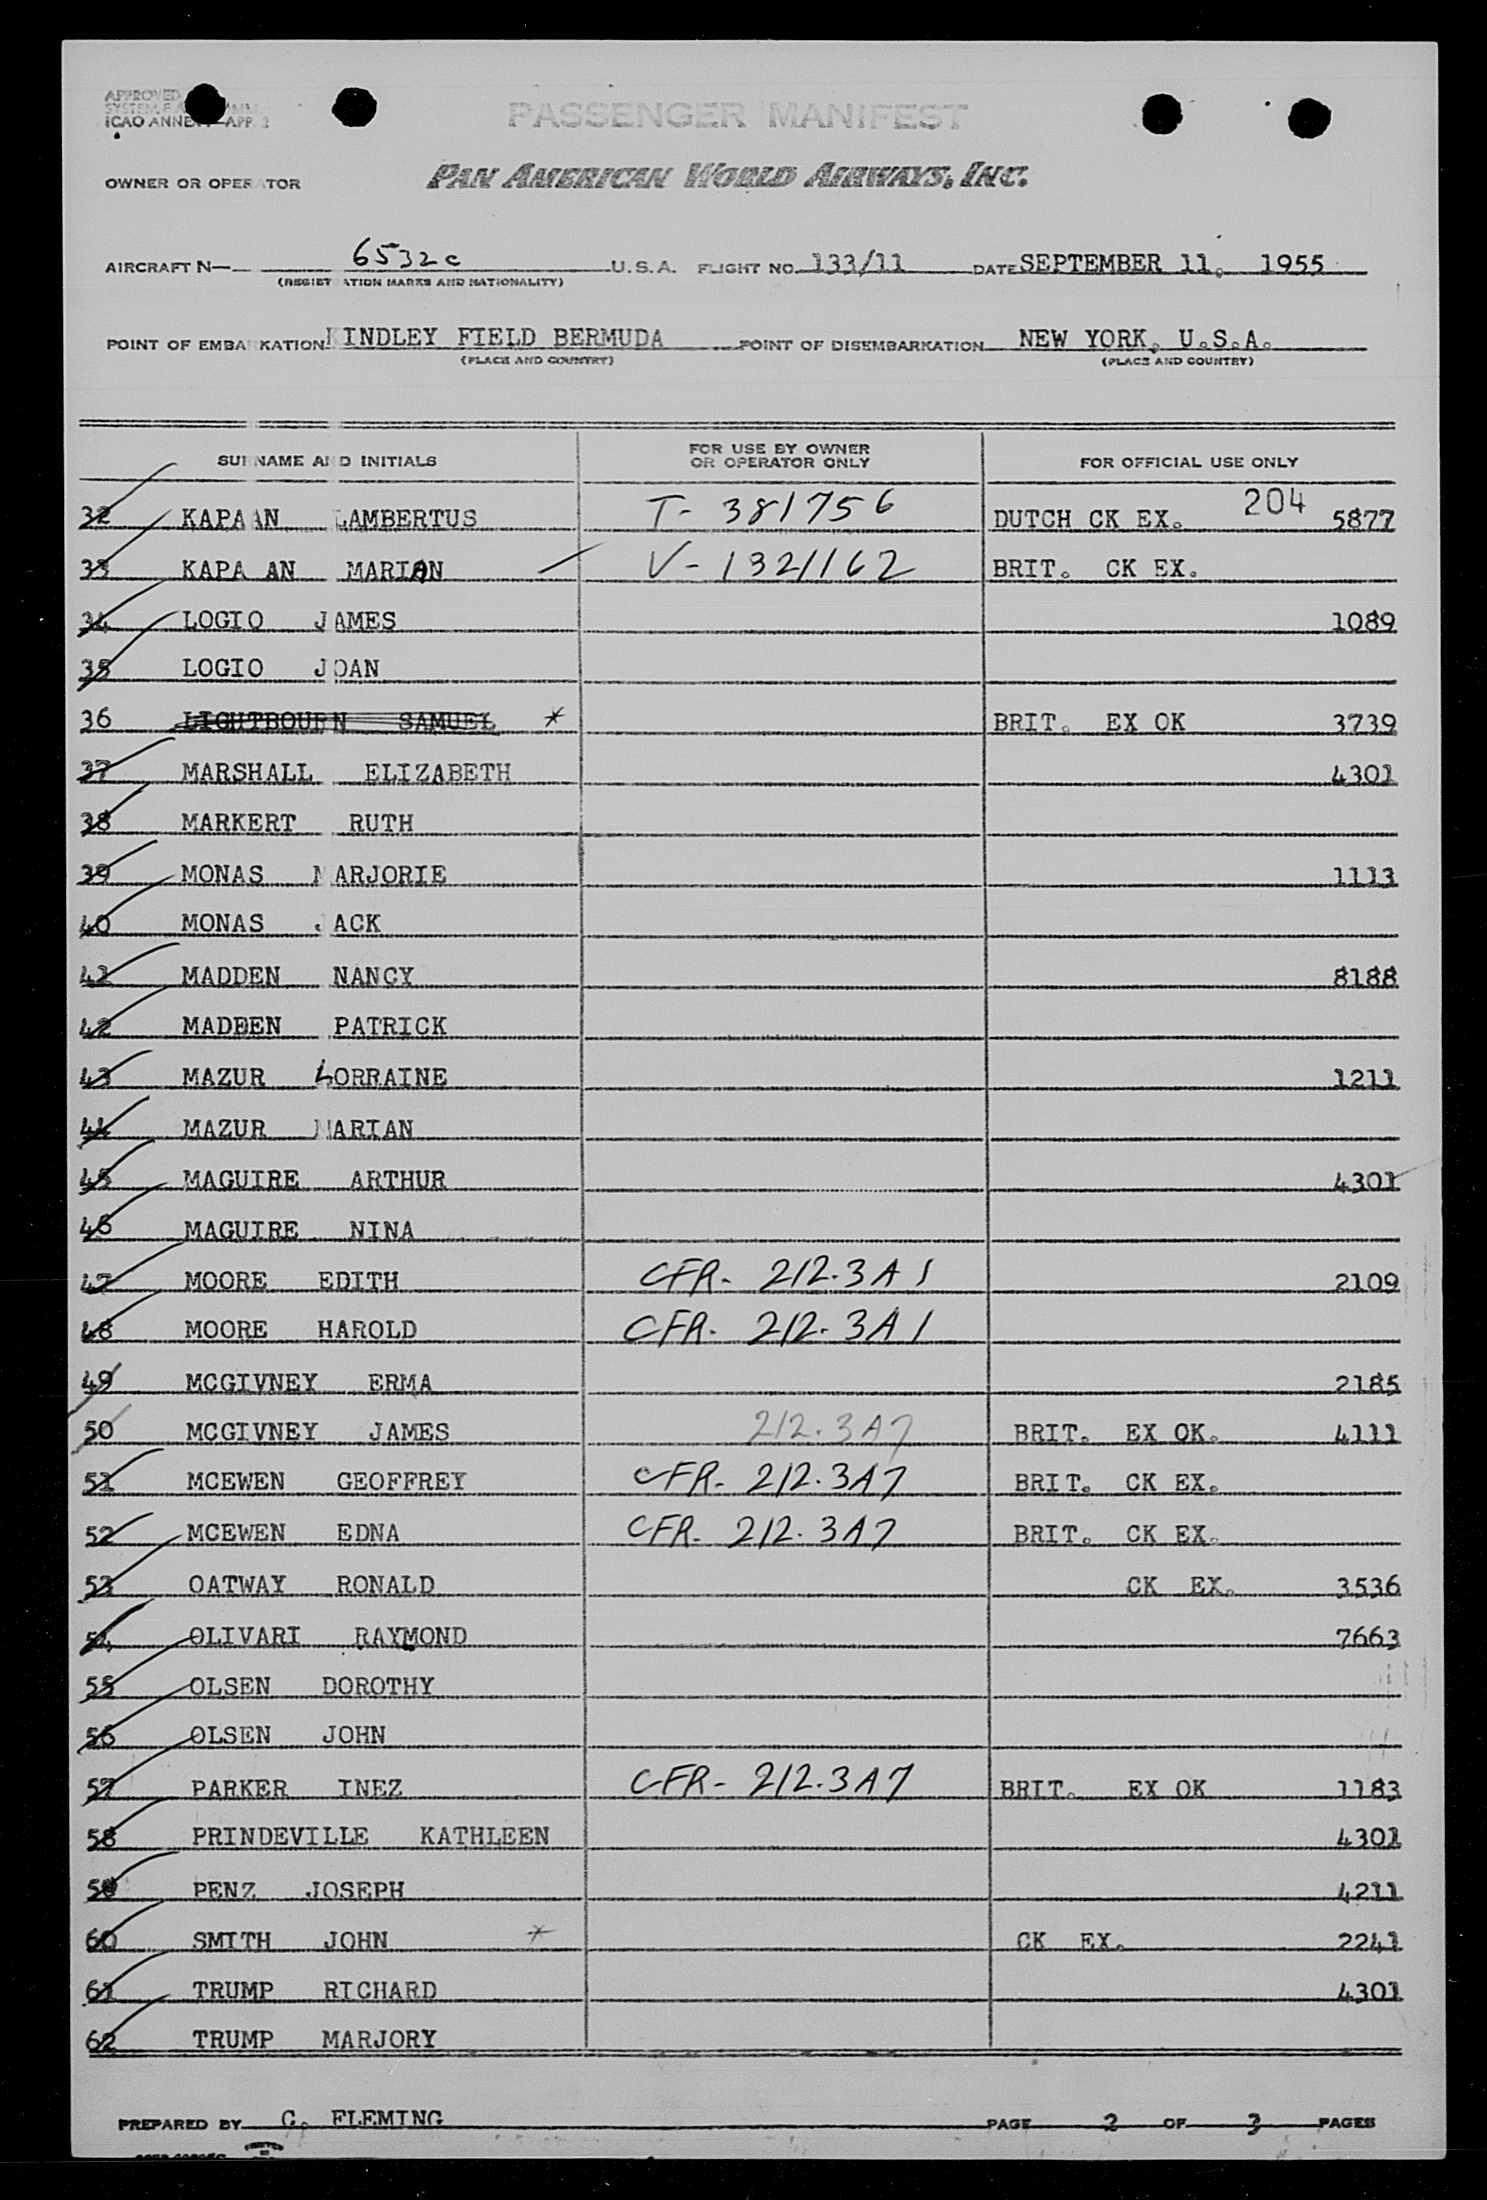 APPROVED
ICAO ANNEX APP 2
PASSENGER MANIFEST
OWNER OR OPERATOR PAN AMERICAN WORLD AIRWAYS, INC.
AIRCRAFT N— 6532c U.S.A. FLIGHT NO. 133/11 DATE SEPTEMBER 11, 1955
(REGISTRATION MARKS AND NATIONALITY)
POINT OF EMBARKATION KINDLEY FIELD BERMUDA POINT OF DISEMBARKATION NEW YORK, U.S.A.
(PLACE AND COUNTRY) (PLACE AND COUNTRY)
SURNAME AND INITIALS FOR USE BY OWNER OR OPERATOR ONLY FOR OFFICIAL USE ONLY
204
32 KAPAAN LAMBERTUS T- 381756 DUTCH CK EX. 5877
33 KAPAAN MARIAN V- 1321162 BRIT. CK EX.
34 LOGIO JAMES 1089
35 LOGIO JOAN
36 LIGHTBOURN SAMUEL * BRIT. EX OK 3739
37 MARSHALL ELIZABETH 4301
38 MARKERT RUTH
39 MONAS MARJORIE 1113
40 MONAS JACK
41 MADDEN NANCY 8188
42 MADDEN PATRICK
43 MAZUR LORRAINE 1211
44 MAZUR MARIAN
45 MAGUIRE ARTHUR 4301
46 MAGUIRE NINA
47 MOORE EDITH CFR- 212.3A1 2109
48 MOORE HAROLD CFR- 212.3A1
49 MCGIVNEY ERMA 2185
50 MCGIVNEY JAMES 212.3A7 BRIT. EX OK. 4111
51 MCEWEN GEOFFREY CFR- 212.3A7 BRIT. CK EX.
52 MCEWEN EDNA CFR- 212.3A7 BRIT. CK EX.
53 OATWAY RONALD CK EX. 3536
54 OLIVARI RAYMOND 7663
55 OLSEN DOROTHY
56 OLSEN JOHN
57 PARKER INEZ CFR- 212.3A7 BRIT. EX OK 1183
58 PRINDEVILLE KATHLEEN 4301
59 PENZ JOSEPH 4211
60 SMITH JOHN * CK EX. 2241
61 TRUMP RICHARD 4301
62 TRUMP MARJORY
PREPARED BY C. FLEMING PAGE 2 OF 3 PAGES